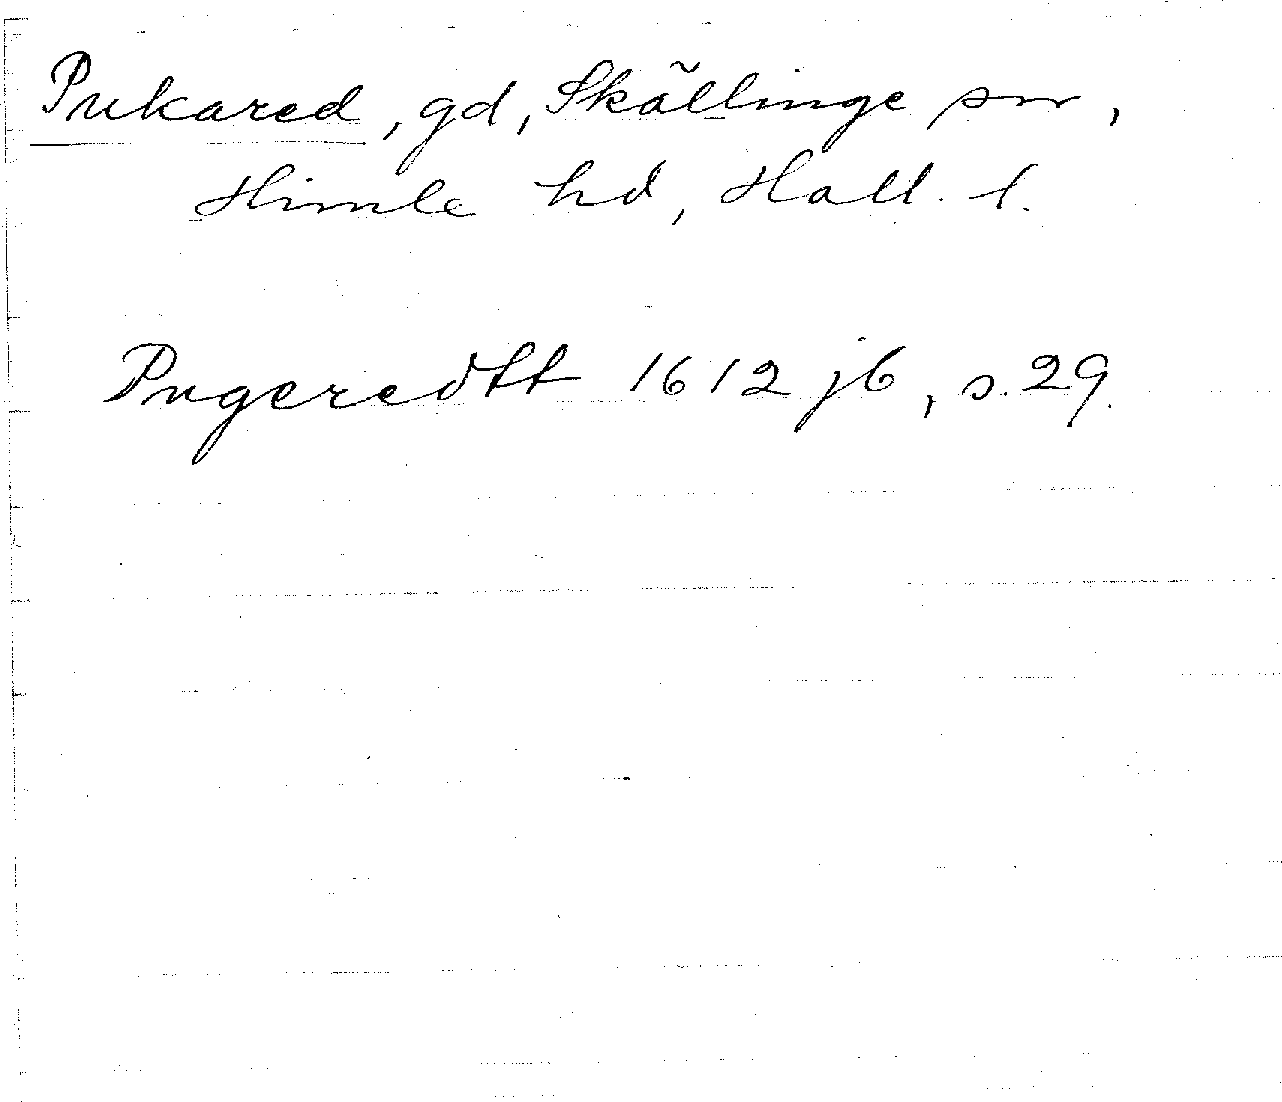 Pukared, gd, Skällinge sn,
Himle hd, Hall. l.
Pugeredtt 1612 jb, s. 29.